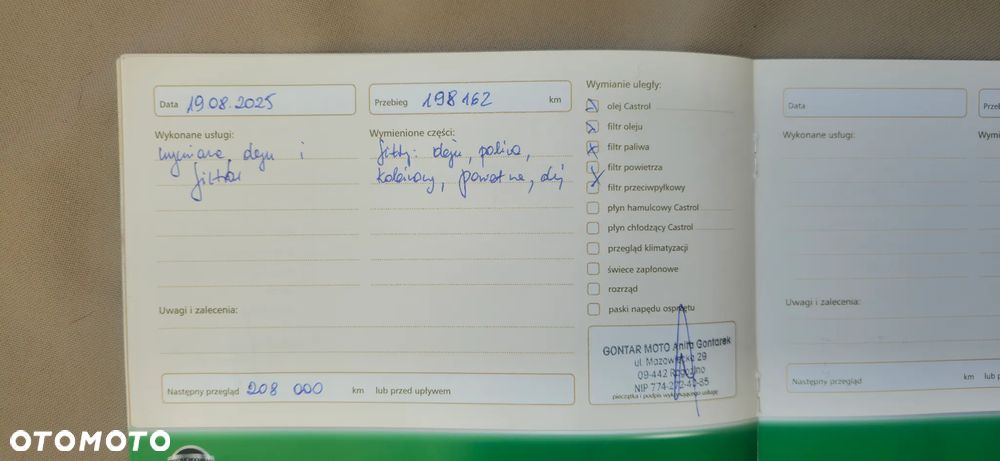 Data 19.08.2025
Przebieg 198 162 km
Wykonane usługi:
wymiana oleju i
filtrów
Wymienione części:
filtry: oleju, paliwa,
kabinowy, powietrza, olej
Wymianie uległy:
olej Castrol
filtr oleju
filtr paliwa
filtr powietrza
filtr przeciwpyłkowy
płyn hamulcowy Castrol
płyn chłodzący Castrol
przegląd klimatyzacji
świece zapłonowe
rozrząd
paski napędu osprzętu
Uwagi i zalecenia:
GONTAR MOTO Anita Gontarek
ul. Mazowiecka 29
09-442 Rogozino
NIP 774-272-42-85
pieczątka i podpis wykonującego usługę
Następny przegląd 208 000 km lub przed upływem
Data
Wykonane usługi:
Uwagi i zalecenia:
Następny przegląd km
OTOMOTO